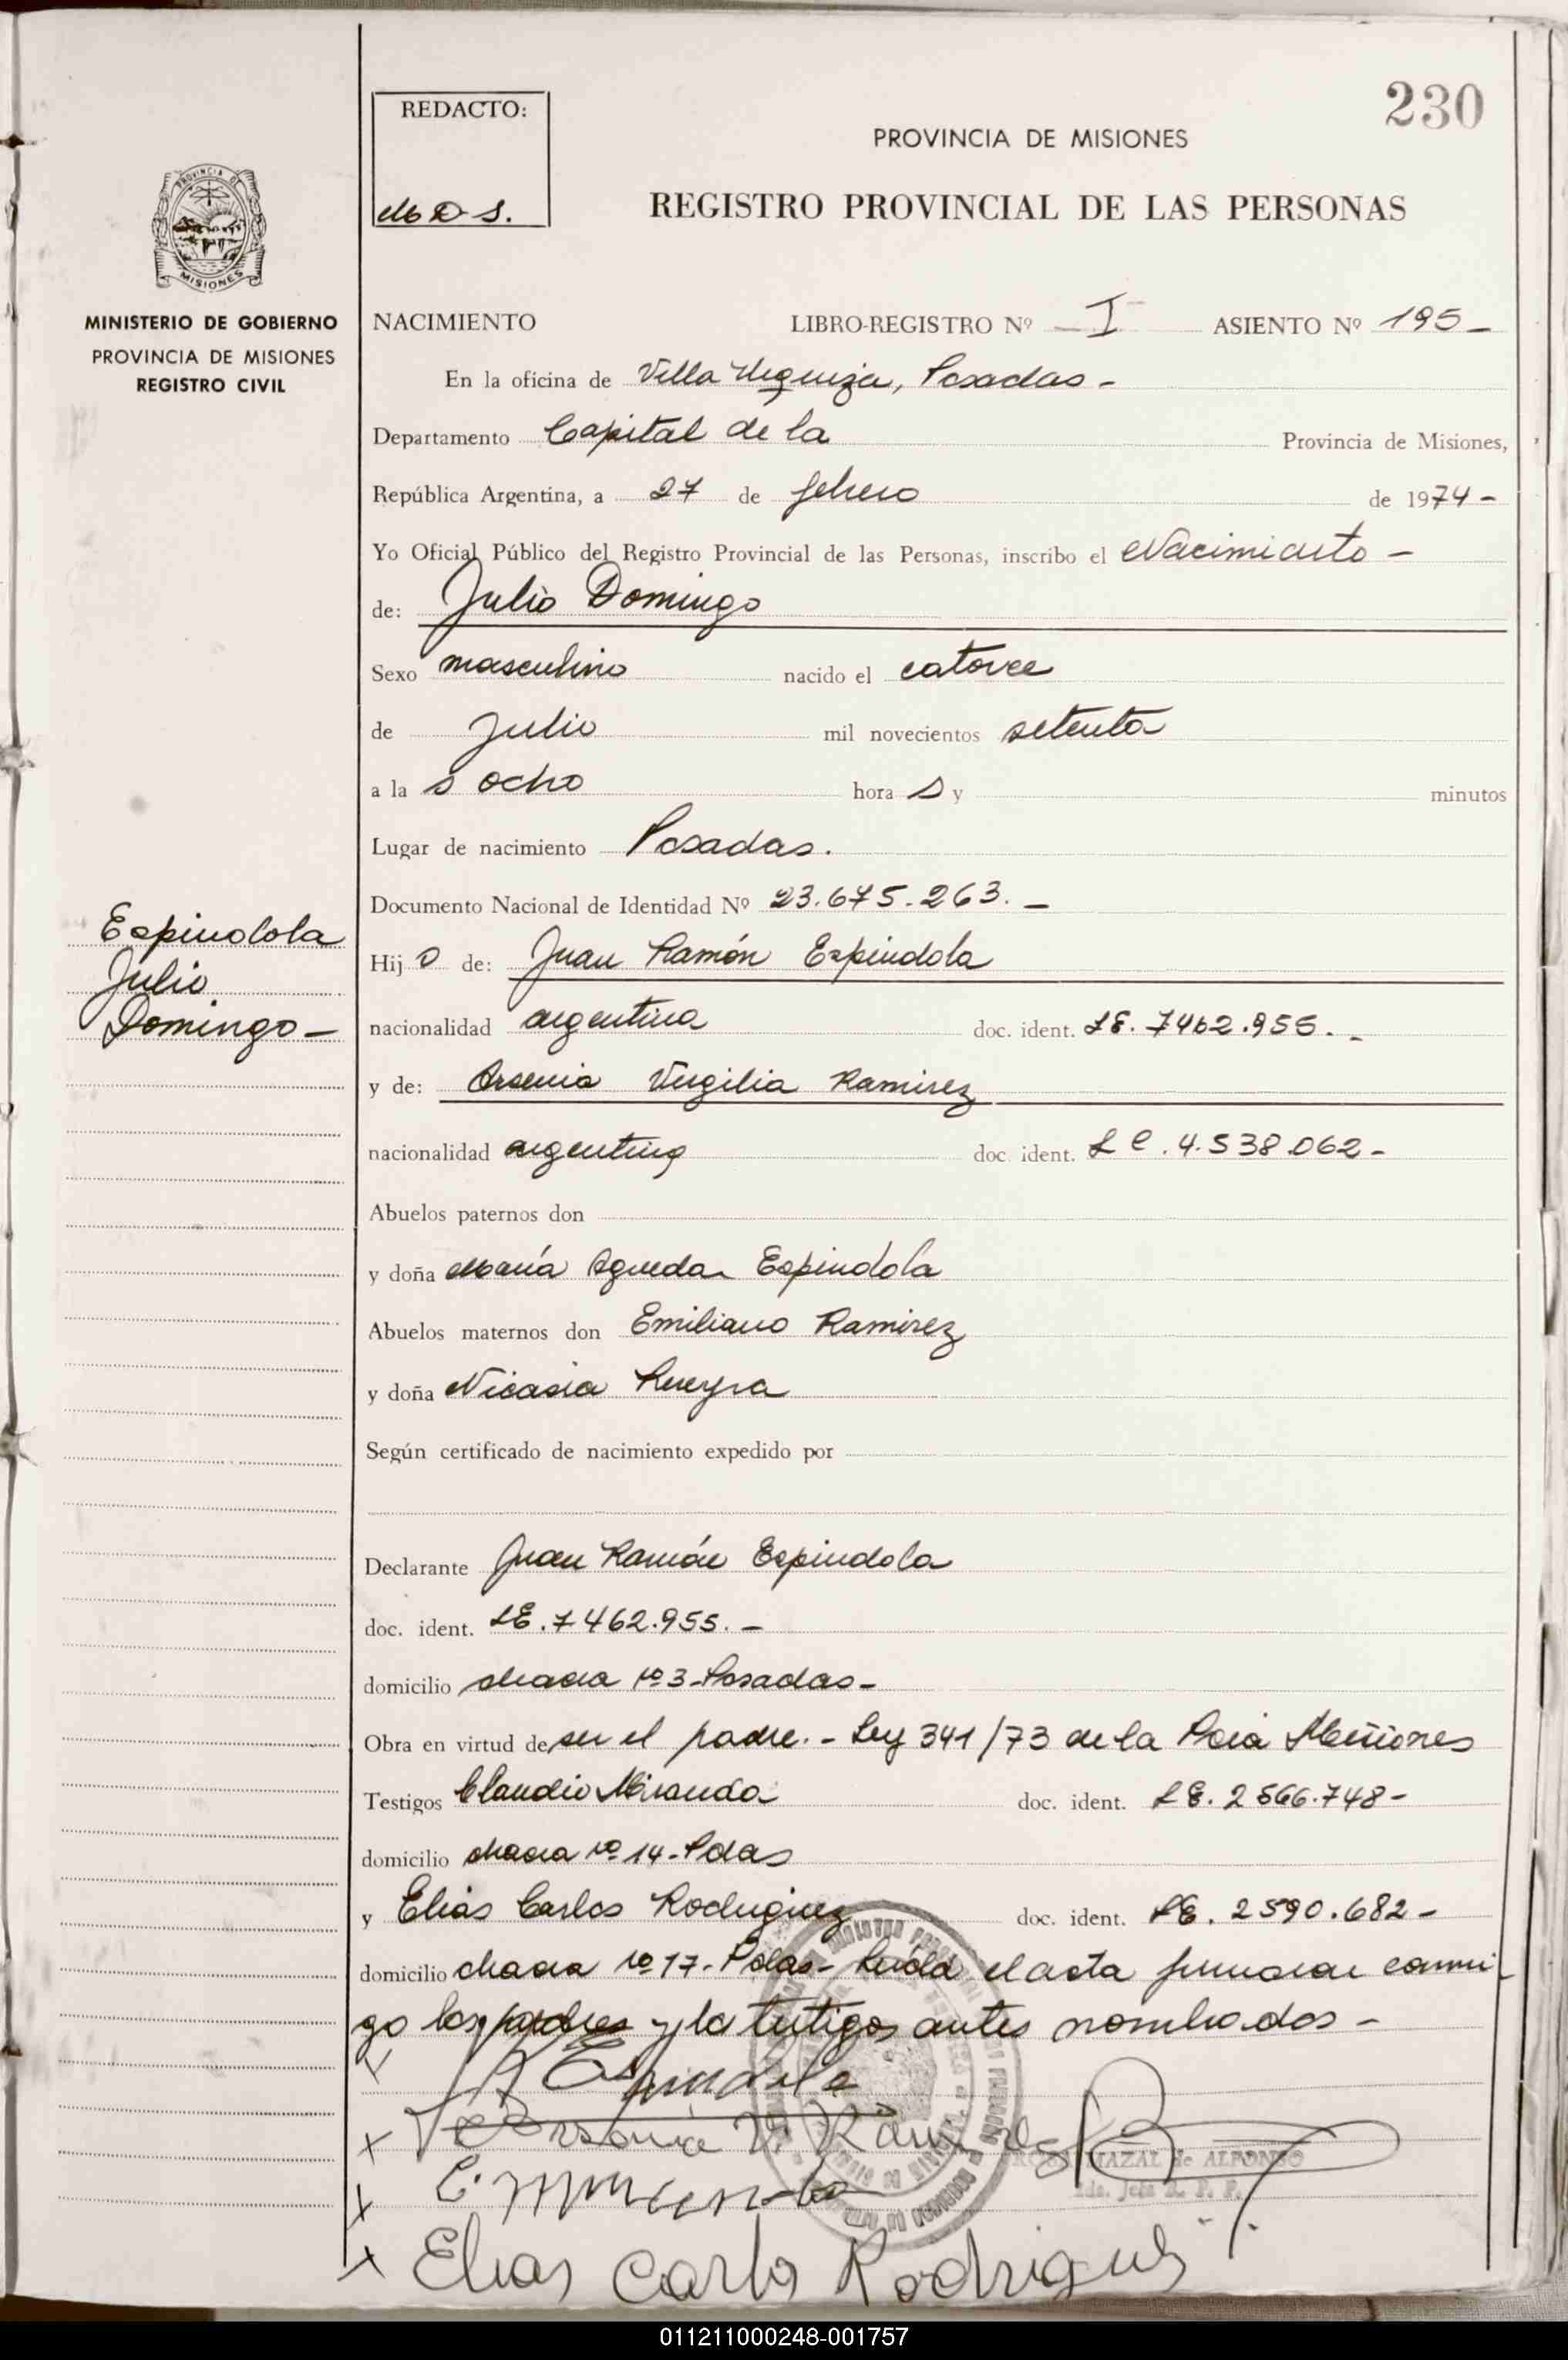 230
REDACTO:
M D S.
PROVINCIA DE MISIONES
REGISTRO PROVINCIAL DE LAS PERSONAS
PROVINCIA DE
MISIONES
MINISTERIO DE GOBIERNO
PROVINCIA DE MISIONES
REGISTRO CIVIL
NACIMIENTO LIBRO-REGISTRO Nº I ASIENTO Nº 195-
En la oficina de Villa Urquiza, Posadas-
Departamento Capital de la Provincia de Misiones,
República Argentina, a 27 de febrero de 1974-
Yo Oficial Público del Registro Provincial de las Personas, inscribo el Nacimiento-
de: Julio Domingo
Sexo masculino nacido el catorce
de Julio mil novecientos setenta
a la s ocho hora s y minutos
Lugar de nacimiento Posadas.
Documento Nacional de Identidad Nº 23.675.263.-
Espindola
Julio
Domingo-
Hij o de: Juan Ramón Espindola
nacionalidad argentina doc. ident. LE. 7462.955.-
y de: Arsenia Virgilia Ramirez
nacionalidad argentina doc. ident. L C. 4.538.062-
Abuelos paternos don
y doña María Agueda Espindola
Abuelos maternos don Emiliano Ramirez
y doña Nicasia
Según certificado de nacimiento expedido por
Declarante Juan Ramón Espindola
doc. ident. LE. 7462.955.-
domicilio chacra nº 3-Posadas-
Obra en virtud de ser el padre.- Ley 341/73 de la Pcia Misiones
Testigos Claudio Miranda doc. ident. LE. 2566.748-
domicilio chacra nº 14-Pdas
y Elias Carlos Rodriguez doc. ident. LE. 2590.682-
domicilio chacra nº 17-Pdas- Leída el acta firmaron conmi-
go los padres y lo testigos antes nombrados-
x Espindola
x Arsenia V. Ramirez
x
x Elias Carlos Rodrigues
MAZAL de ALFONSO
011211000248-001757